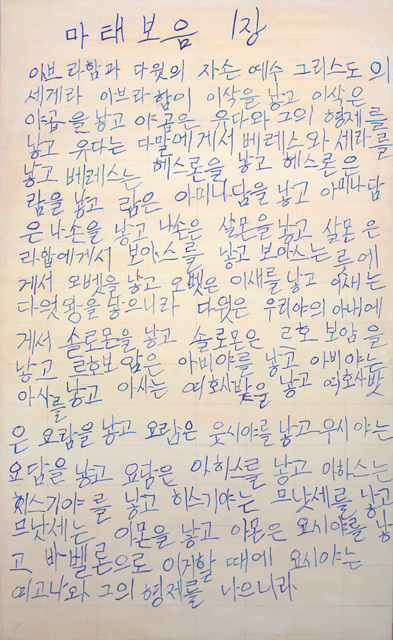 마태보음 1장
아브라함과 다윗의 자손 예수 그리스도의
세게라 아브라함이 이삭을 낳고 이삭은
야곱을 낳고 야곱은 유다와 그의 형제를
낳고 유다는 다말에게서 베레스와 세라를
낳고 베레스는 헤스론을 낳고 헤스론은
람을 낳고 람은 아미나답을 낳고 아미나답
은 나손을 낳고 나손은 살몬을 낳고 살몬은
라합에게서 보아스를 낳고 보아스는 룻에
게서 오벧을 낳고 오벳은 이새를 낳고 이새는
다윗왕을 낳으니라 다윗은 우리야의 아내에
게서 솔로몬을 낳고 솔로몬은 르호보암을
낳고 르호보암은 아미야를 낳고 아비야는
아사를 낳고 아사는 여호사밧을 낳고 여호사밧
은 요람을 낳고 요람은 웃시야를 낳고 우시야는
요담을 낳고 요담은 아하스를 낳고 아하스는
히스기야를 낳고 히스기야는 므낫세를 낳고
므낫세는 아몬을 낳고 아몬은 요시야를 낳
고 바벨론으로 이거할 때에 요시야는
여고냐와 그의 형제를 나으니라